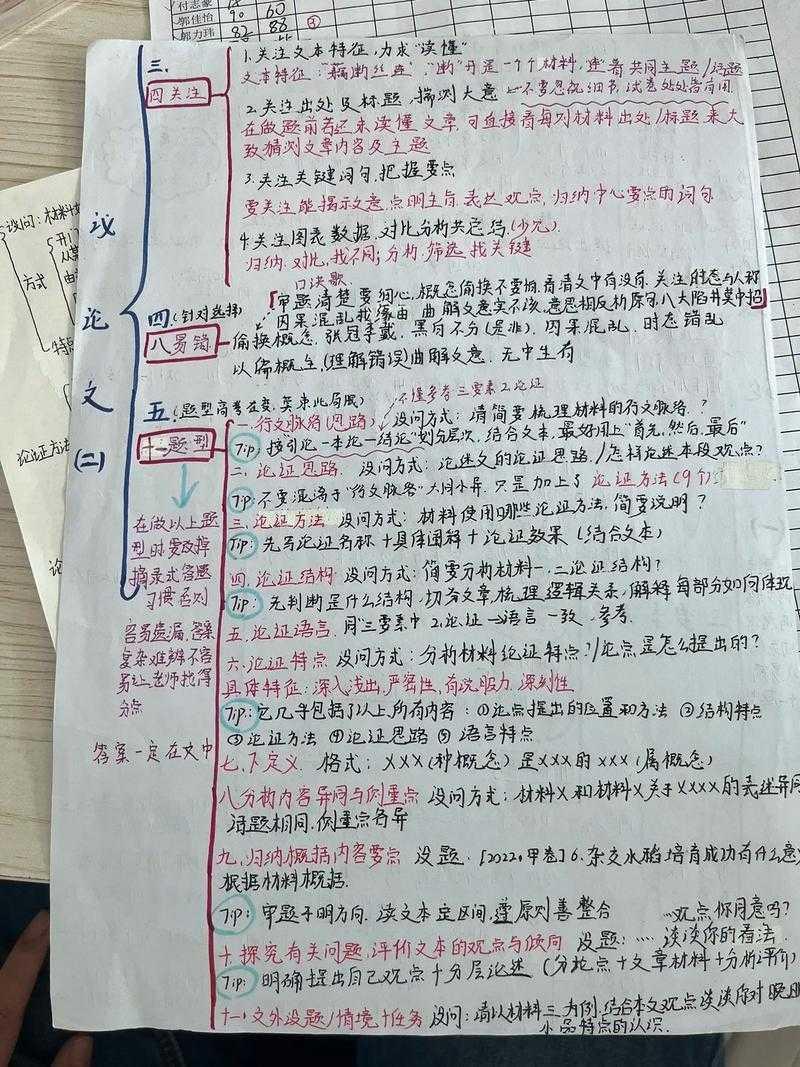 付志豪
郭佳怡 90 60
郭力玮 82 88
议论文(二)
三.
四关注
1.关注文本特征,力求"读懂"
文本特征:"藕断丝连""断"开是一个个材料,连着共同主题/话题
2.关注出处及标题,揣测大意 不要忽视细节,试卷处处皆有用
在做题前若还未读懂文章,可直接看每则材料出处/标题来大
致猜测文章内容及主题
3.关注关键词句,把握要点
要关注能揭示文意,点明主旨,表达观点,归纳中心要点的词句
4.关注图表数据,对比分析共总结.(少见)
归纳,对比,找不同;分析,筛选,找关键
口决歌
四.(针对选择)
八易错
「审题清楚要细心,概念偷换不要怕,看清文中有没有,关注时态与人称
因果混乱找缘由,曲解文意实不该,意思相反析原句,八大陷井莫中招」
偷换概念,张冠李戴,黑白不分(是非),因果混乱,时态错乱
以偏概全,(理解错误)曲解文意,无中生有
五.(题型高考在变,莫束此局限)
十一题型
不懂参考三要素2.论证
一.行文脉络(思路) 设问方式:请简要梳理材料的行文脉络.?
Tip:按引论—本论—结论"划分层次,结合文本,最好用上"首先,然后,最后"
二.论证思路. 设问方式:论述文的论证思路./怎样论述本段观点?
Tip:不要混淆于"行文脉络"大同小异,只是加上了论证方法(9个)
三.论证方法 设问方式:材料使用哪些论证方法,简要说明?
Tip:先写论证名称+具体阐释+论证效果(结合文本)
四.论证结构 设问方式:简要分析材料一,二论证结构?
Tip:先判断是什么结构,切分文章,梳理逻辑关系,解释每部分如何体现
五.论证语言.用"三要素中2.论证→语言一致,参考.
六.论证特点 设问方式:分析材料论证特点?/论点是怎么提出的?
具体特征:深入浅出,严密性,有说服力,深刻性
Tip:它几乎包括了以上所有内容:①论点提出的位置和方法 ②结构特点
③论证方法 ④论证思路 ⑤语言特点
七.下定义. 格式:XXX(种概念)是XXX的XXX(属概念)
八分析内容异同与侧重点 设问方式:材料X和材料X关于XXXX的表述异同
话题相同,侧重点各异
九.归纳概括内容要点 设题.[2022.甲卷]6.杂交水稻培育成功有什么意
根据材料概括.
Tip:审题干明方向,读文本定区间,遵原则善整合 …观点你同意吗?
十.探究有关问题,评价文本的观点与倾向 设题:…谈谈你的看法.
Tip:明确提出自己观点+分层论述(分论点+文章材料+分析评价)
十一.文外设题/情境+任务 设问:请以材料三为例,结合本文观点谈谈你对晚明
小品特点的认识.
在做以上题
型时要改掉
摘录式答题
习惯否则
容易遗漏,答案
复杂难辨,不容
易让老师找得
分点
答案一定在文中
设问:材料
方式
论证方法